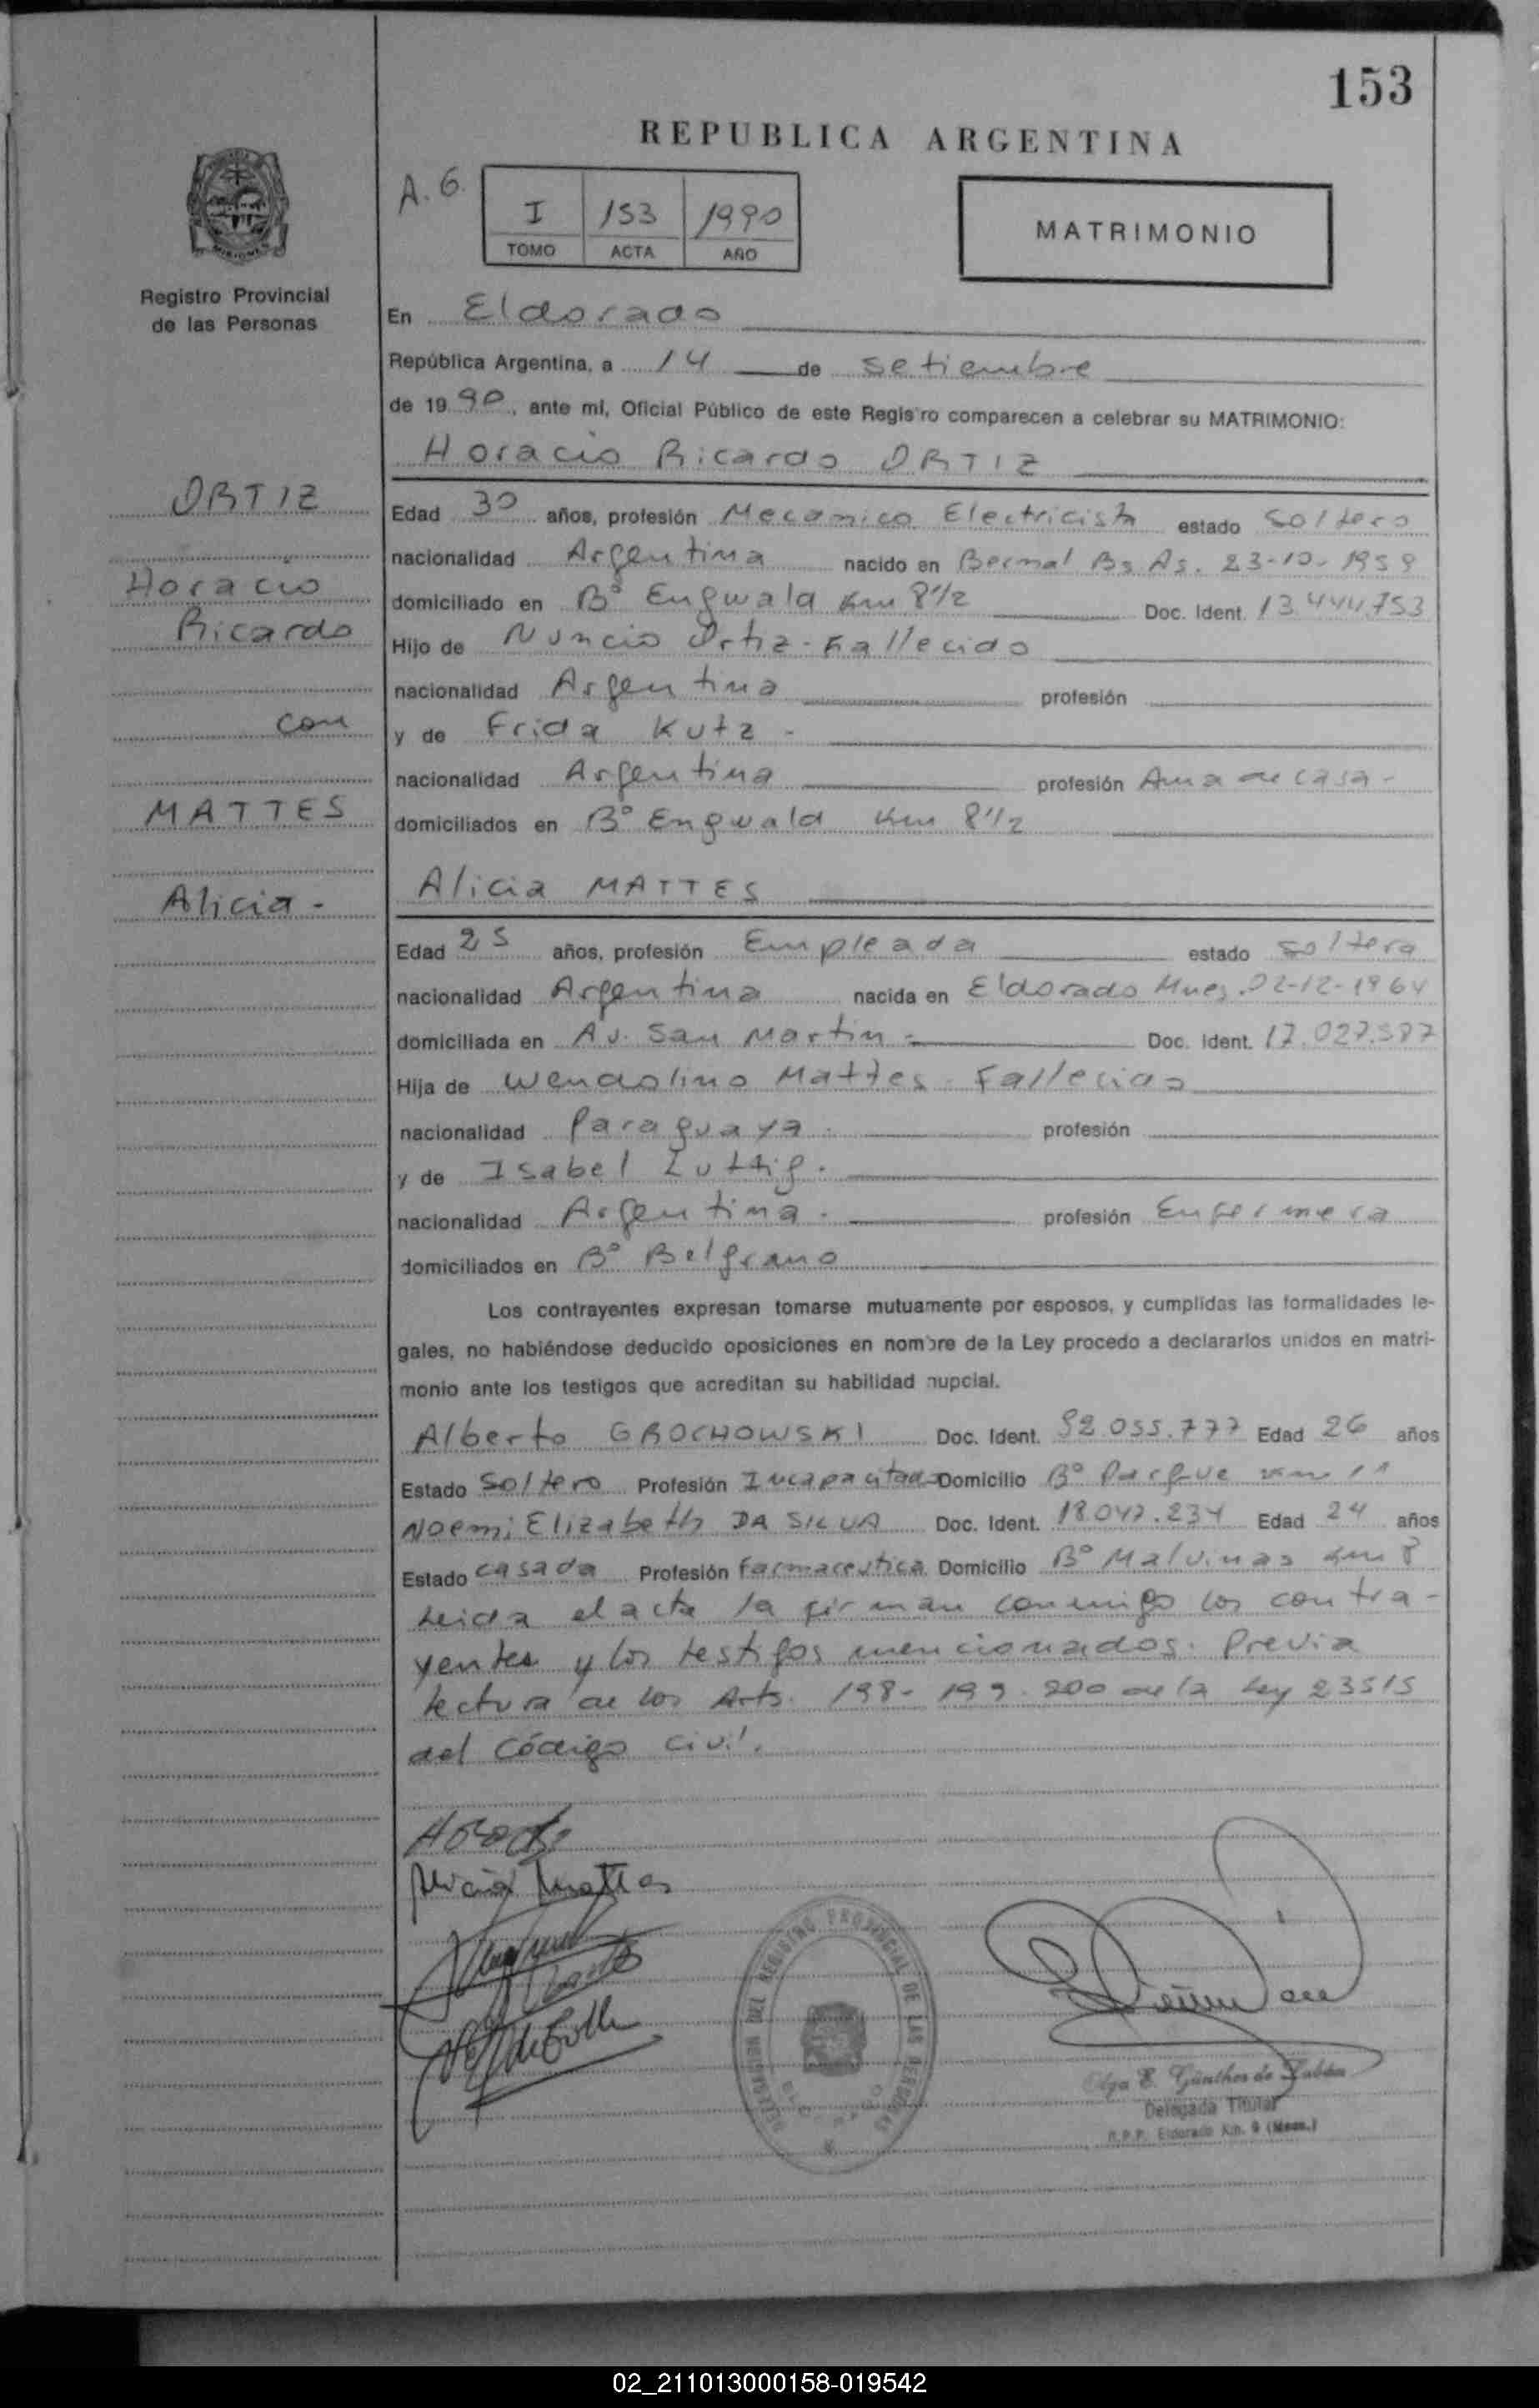 153
REPUBLICA ARGENTINA
A. G.
I 153 1990
TOMO ACTA AÑO
MATRIMONIO
MISIONES
Registro Provincial
de las Personas
En Eldorado
República Argentina, a 14 de setiembre
de 1990, ante mí, Oficial Público de este Registro comparecen a celebrar su MATRIMONIO:
Horacio Ricardo ORTIZ
ORTIZ
Horacio
Ricardo
con
MATTES
Alicia -
Edad 30 años, profesión Mecanico Electricista estado soltero
nacionalidad Argentina nacido en Bermal Bs As. 23-10-1959
domiciliado en B° Engwald Km 8 1/2 Doc. Ident. 13.444.753
Hijo de Nuncio Ortiz - Fallecido
nacionalidad Argentina profesión
y de Frida Kutz -
nacionalidad Argentina profesión Ama de casa -
domiciliados en B° Engwald Km 8 1/2
Alicia MATTES
Edad 25 años, profesión Empleada estado soltera
nacionalidad Argentina nacida en Eldorado Mnes. 02-12-1964
domiciliada en Av. San Martin - Doc. Ident. 17.027.387
Hija de Wendolino Mattes - Fallecido
nacionalidad Paraguaya. profesión
y de Isabel Luttig.
nacionalidad Argentina. profesión Enfermera
domiciliados en B° Belgrano
Los contrayentes expresan tomarse mutuamente por esposos, y cumplidas las formalidades le-
gales, no habiéndose deducido oposiciones en nombre de la Ley procedo a declararlos unidos en matri-
monio ante los testigos que acreditan su habilidad nupcial.
Alberto GROCHOWSKI Doc. Ident. 92.055.777 Edad 26 años
Estado Soltero Profesión Incapacitado Domicilio B° Parque Km 11
Noemi Elizabeth DA SILVA Doc. Ident. 18.047.234 Edad 24 años
Estado casada Profesión Farmaceutica Domicilio B° Malvinas Km 8
Leida el acta la firman conmigo los contra-
yentes y los testigos mencionados. Previa
lectura de los Arts. 198- 199- 200 de la Ley 23515
del Código Civil.
Alicia Mattes
DELEGACION DEL REGISTRO PROVINCIAL DE LAS PERSONAS
ELDORADO
Olga E. Günther de Labán
Delegada Titular
R.P.P. Eldorado Km. 9 (Mnes.)
02_211013000158-019542